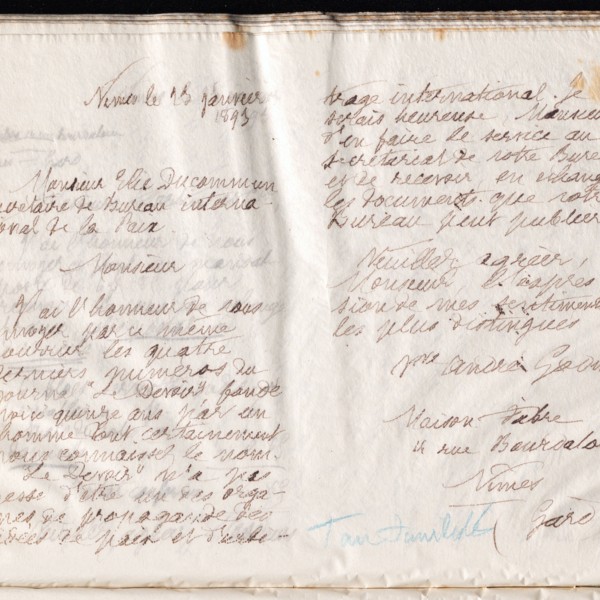 Nimes le 23 janvier
1893
Monsieur Elie Ducommun
secrétaire de Bureau interna-
ional de la Paix
Monsieur
J'ai l'honneur de vous
envoyer par ce même
courrier les quatre
derniers numéros du
journal "Le Devoir" fondé
il y a quinze ans par un
homme dont certainement
vous connaissez le nom.
"Le Devoir" n'a pas
cessé d'être un des orga-
nes de propagande des
idées de paix et d'arbi-
trage international. Je
serais heureuse, Monsieur
d'en faire le service au
secrétariat de votre Bureau
et de recevoir en échange
les documents que votre
Bureau peut publier
Veuillez agréer,
Monsieur l'expres
sion de mes sentiments
les plus distingués
Marie André
Maison Fabre
rue Bourdalo
Nimes
Gard